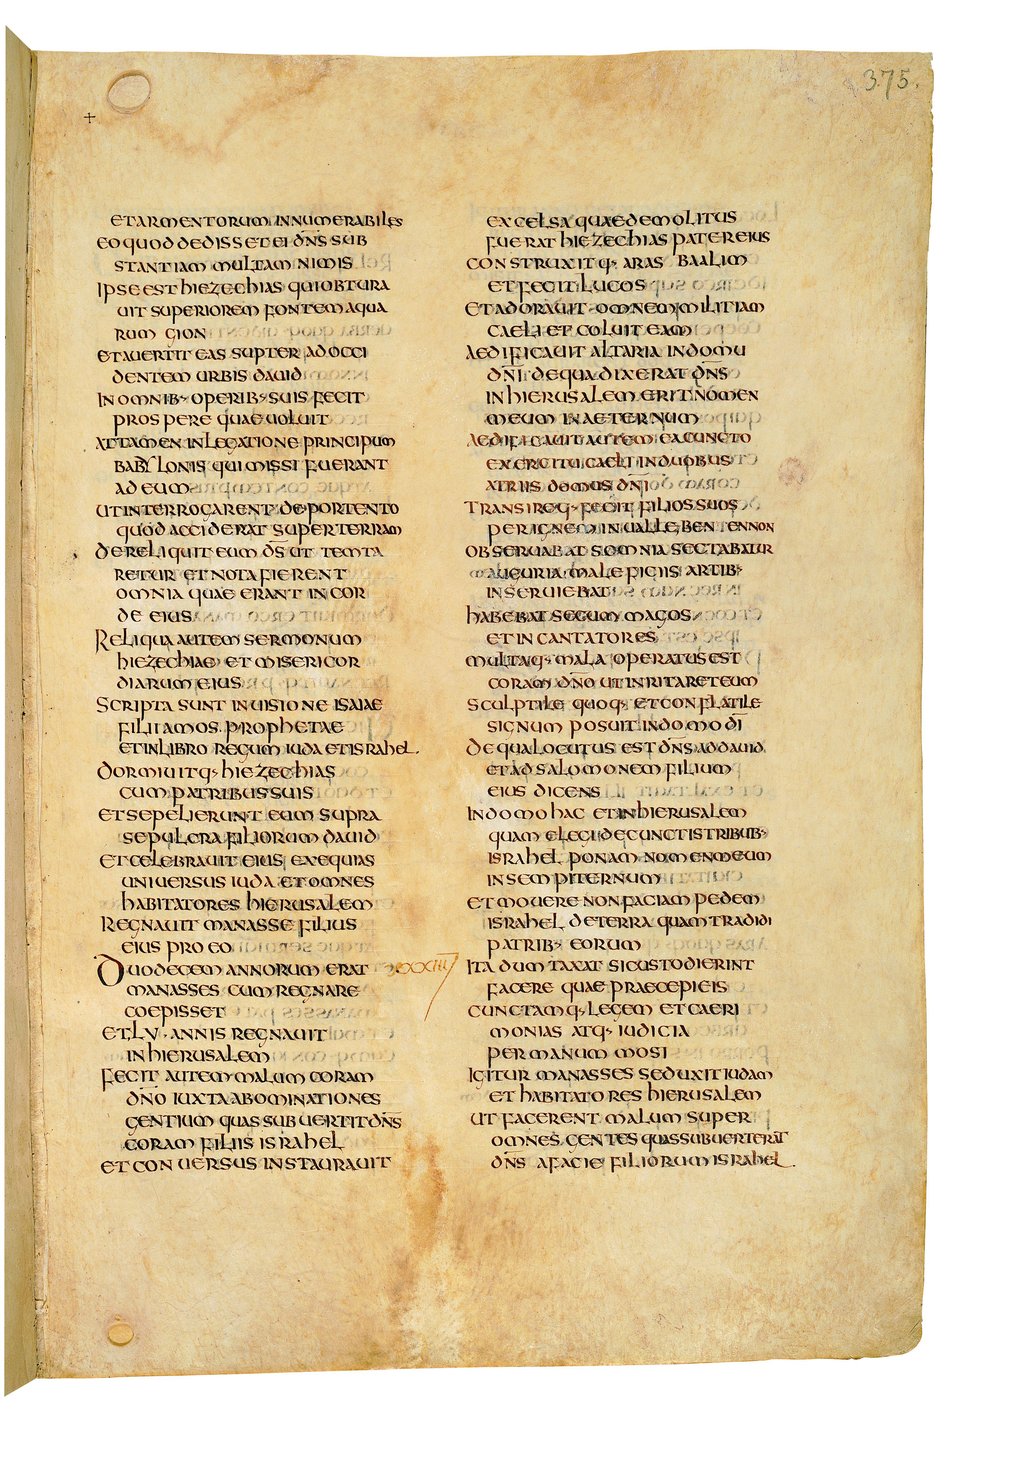 375.
+
ETARMENTORUM INNUMERABILES
EO QUOD DEDISSET EI D̄N̄S SUB
STANTIAM MULTAM NIMIS
IPSE EST HIEZECHIAS QUI OBTURA
UIT SUPERIOREM FONTEM AQUA
RUM GION
ET AUERTIT EAS SUPTER AD OCCI
DENTEM URBIS DAUID
IN OMNIB· OPERIB· SUIS FECIT
PROSPERE QUAE UOLUIT
ATTAMEN IN LEGATIONE PRINCIPUM
BABYLONIS QUI MISSI FUERANT
AD EUM
UT INTERROGARENT DE PORTENTO
QUOD ACCIDERAT SUPER TERRAM
DERELIQUIT EUM D̄S̄ UT TEMTA
RETUR ET NOTA FIERENT
OMNIA QUAE ERANT IN COR
DE EIUS
RELIQUA AUTEM SERMONUM
HIEZECHIAE ET MISERICOR
DIARUM EIUS
SCRIPTA SUNT IN UISIONE ISAIAE
FILII AMOS PROPHETAE
ET IN LIBRO REGUM IUDA ET ISRAHEL.
DORMIUITQ· HIEZECHIAS
CUM PATRIBUS SUIS
ET SEPELIERUNT EUM SUPRA
SEPULCRA FILIORUM DAUID
ET CELEBRAUIT EIUS EXEQUIAS
UNIUERSUS IUDA ET OMNES
HABITATORES HIERUSALEM
REGNAUIT MANASSE FILIUS
EIUS PRO EO
DUODECEM ANNORUM ERAT XXXIII
MANASSES CUM REGNARE
COEPISSET
ET LV · ANNIS REGNAUIT
IN HIERUSALEM
FECIT AUTEM MALUM CORAM
D̄N̄O IUXTA ABOMINATIONES
GENTIUM QUAS SUBUERTIT D̄N̄S
CORAM FILIIS ISRAHEL
ET CONUERSUS INSTAURAUIT
EXCELSA QUAE DEMOLITUS
FUERAT HIEZECHIAS PATER EIUS
CONSTRUXITQ· ARAS BAALIM
ET FECIT LUCOS
ET ADORAUIT OMNEM MILITIAM
CAELI ET COLUIT EAM
AEDIFICAUIT ALTARIA IN DOMU
D̄N̄I DE QUA DIXERAT D̄N̄S
IN HIERUSALEM ERIT NOMEN
MEUM IN AETERNUM
AEDIFICAUIT AUTEM EA CUNCTO
EXERCITU CAELI IN DUOBUS
ATRIIS DOMUS D̄N̄I
TRANSIREQ· FECIT FILIOS SUOS
PER IGNEM IN UALLE BEN ENNON
OBSERUABAT SOMNIA SECTABATUR
AUGURIA MALEFICIIS ARTIB·
INSERUIEBAT
HABEBAT SECUM MAGOS
ET INCANTATORES
MULTAQ· MALA OPERATUS EST
CORAM D̄N̄O UT INRITARET EUM
SCULPTILE QUOQ· ET CONFLATILE
SIGNUM POSUIT IN DOMO D̄Ī
DE QUA LOCUTUS EST D̄N̄S AD DAUID
ET AD SALOMONEM FILIUM
EIUS DICENS
IN DOMO HAC ET IN HIERUSALEM
QUAM ELEGI DE CUNCTIS TRIBUB·
ISRAHEL PONAM NOMEN MEUM
IN SEMPITERNUM
ET MOUERE NON FACIAM PEDEM
ISRAHEL DE TERRA QUAM TRADIDI
PATRIB· EORUM
ITA DUMTAXAT SI CUSTODIERINT
FACERE QUAE PRAECEPI EIS
CUNCTAMQ· LEGEM ET CAERI
MONIAS ATQ· IUDICIA
PER MANUM MOSI
IGITUR MANASSES SEDUXIT IUDAM
ET HABITATORES HIERUSALEM
UT FACERENT MALUM SUPER
OMNES GENTES QUAS SUBUERTERAT
D̄N̄S A FACIE FILIORUM ISRAHEL.